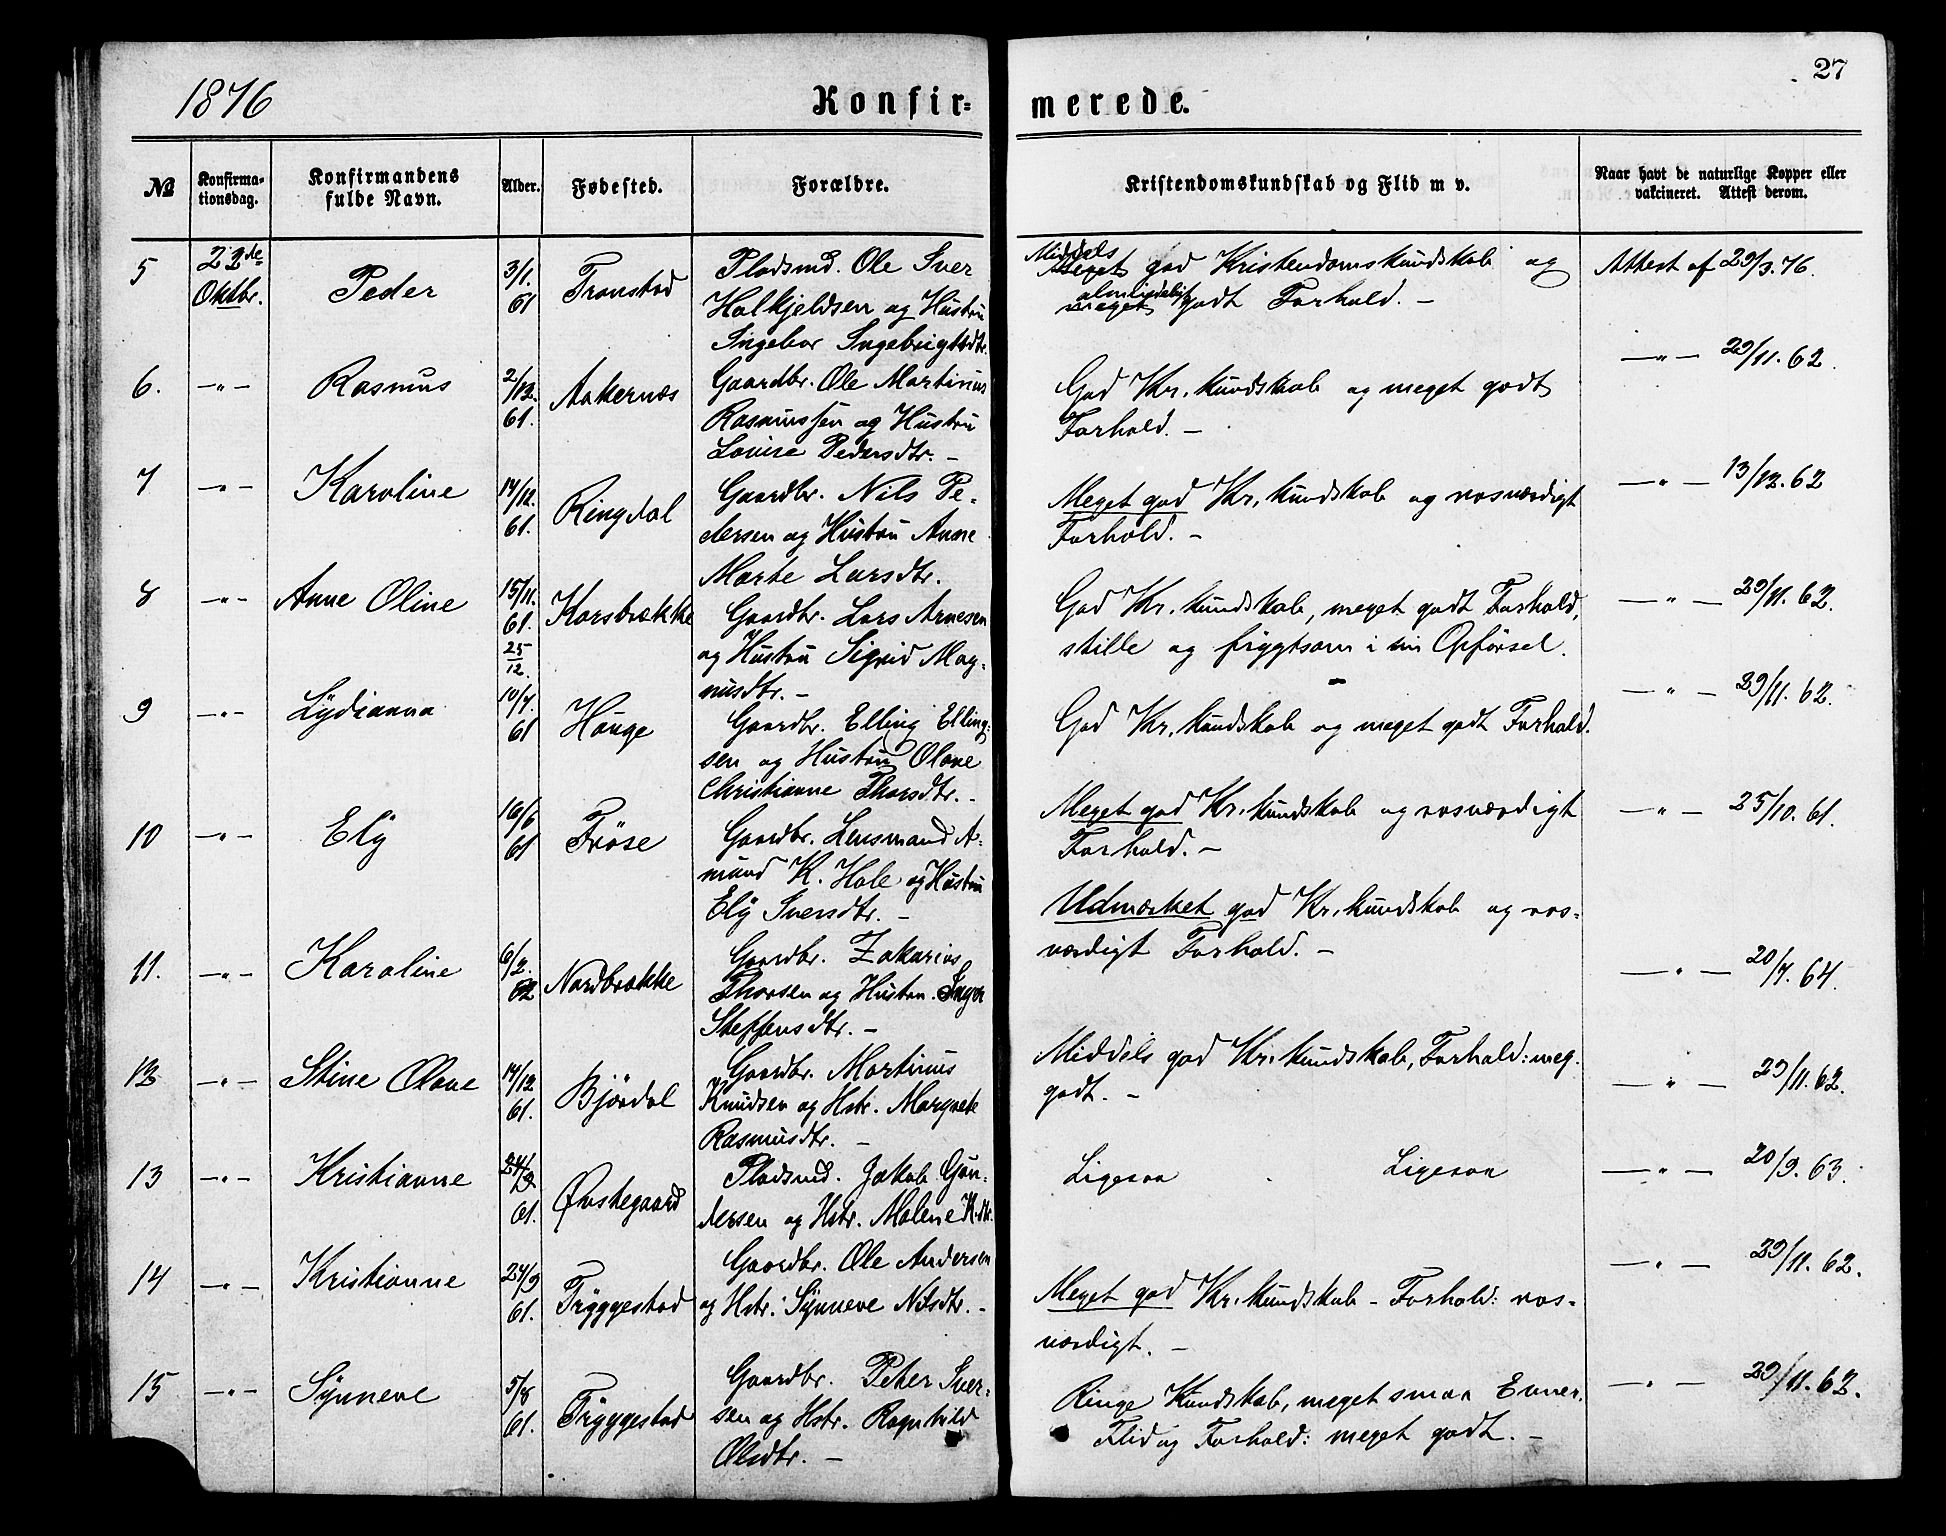 1876
Konfir-
merede.
27
№
Konfirma-
tionsdag.
Konfirmandens
fulde Navn.
Alder.
Fødested.
Forældre.
Kristendomskundskab og Flid m v.
Naar havt de naturlige Kopper eller
vakcineret. Attest derom.
5
22de
Oktbr.
Peder
3/1.
61
Tronstad
Pladsmd. Ole Sver
Halkjeldsen og Hustru
Ingebor Ingebrigtsdtr.
Middels
Meget god Kristendomskundskab og
almindeligt
meget godt Forhold. –
Attest af 29/3.76.
6.
–〃–
Rasmus
2/12.
61.
Aakernæs
Gaardbr. Ole Martinus
Rasmussen og Hustru
Lovise Pedersdtr. –
God Kr.kundskab og meget godt
Forhold. –
–〃– 29/11.62.
7
–〃–
Karoline
14/12.
61.
Ringdal
Gaardbr. Nils Pe-
dersen og Hustru Anne
Marte Larsdtr.
Meget god Kr.kundskab og rosværdigt
Forhold. –
–〃– 13/12.62
8
–〃–
Anne Oline
15/11.
61.
25
12.
Korsbrække
Gaardbr. Lars Arnesen
og Hustru Sigrid Mag-
nusdtr. –
God Kr.kundskab, meget godt Forhold,
stille og frygtsom i sin Opførsel.
–〃– 29/11.62.
9
–〃–
Lydianna
10/7.
61
Houge
Gaardbr. Elling Elling-
sen og Hustru Olave
Christianne Thorsdtr. –
God Kr.kundskab og meget godt Forhold.
–〃– 29/11.62.
10
–〃–
Ely
16/6
61
Frøse
Gaardbr. Lensmand A-
mund K. Hole og Hustru
Ely Sversdtr. –
Meget god Kr.kundskab og rosværdigt
Forhold. –
–〃– 25/10.61.
11.
–〃–
Karoline
6/2.
62
Nordbrække
Gaardbr. Zakarias
Thorsen og Hustru. Inger
Steffensdtr. –
Udmærket god Kr.kundskab og ros-
værdigt Forhold. –
–〃– 20/7.64.
12
–〃–
Stine Olave
14/12
61.
Bjørdal
Gaardbr. Martinus
Knudsen og Hstr. Margrete
Rasmusdtr. –
Middels god Kr.kundskab, Forhold: meg.
godt. –
–〃– 29/11.62.
13
–〃–
Kristianne
61.
Øvstegaard
Pladsmd. Jakob Gun-
dersen og Hstr. Malene K.dtr.
Ligesaa Ligesaa
–〃– 20/9.63.
14
–〃–
Kristianne
24/9
61.
Tryggestad
Gaardbr. Ole Andersen
og Hstr. Synneve Nilsdtr. –
Meget god Kr.kundskab – Forhold: ros-
værdigt. –
–〃– 29/11.62.
15
–〃–
Synneve
5/8
61.
Tryggestad
Gaardbr. Peter Sver-
sen og Hstr. Ragnhild
Olsdtr. –
Ringe Kundskab, meget smaa Evner.
Flid og Forhold: meget godt. –
–〃– 29/11.62.